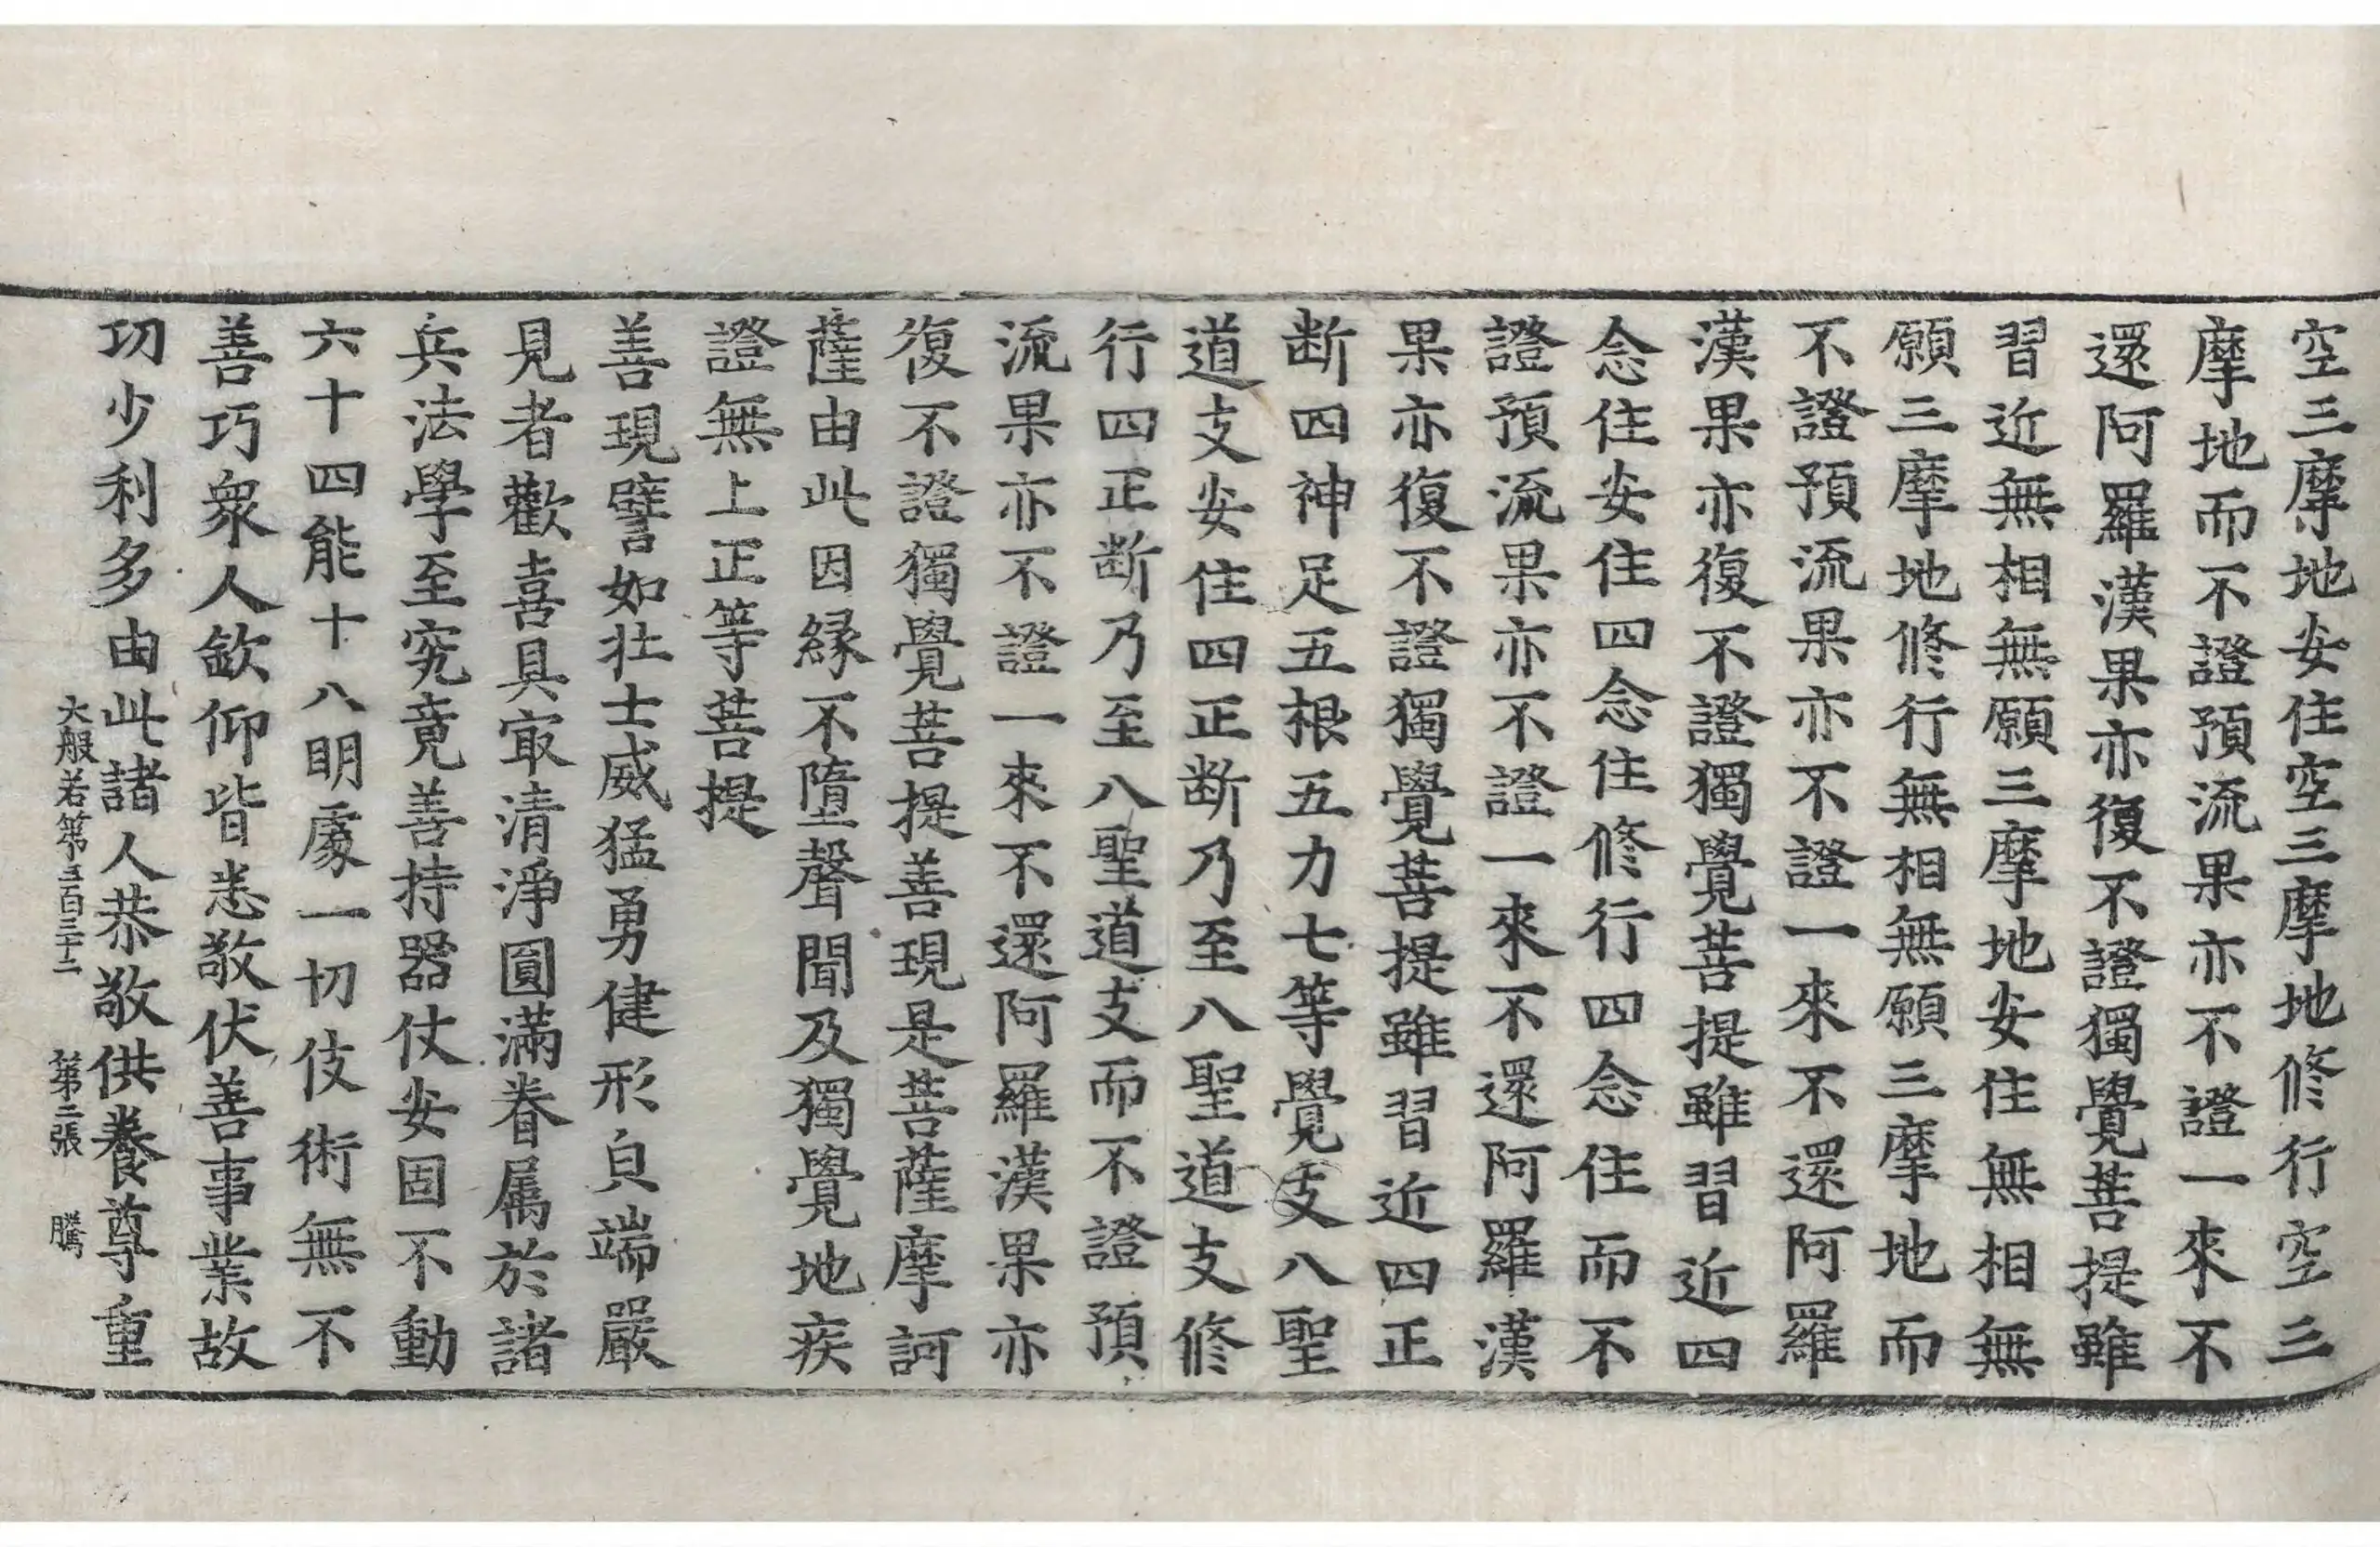 空三摩地安住空三摩地修行空三
摩地而不證預流果亦不證一來不
還阿羅漢果亦復不證獨覺菩提雖
習近無相無願三摩地安住無相無
願三摩地修行無相無願三摩地而
不證預流果亦不證一來不還阿羅
漢果亦復不證獨覺菩提雖習近四
念住安住四念住修行四念住而不
證預流果亦不證一來不還阿羅漢
果亦復不證獨覺菩提雖習近四正
断四神足五根五力七等覺支八聖
道支安住四正断乃至八聖道支修
行四正断乃至八聖道支而不證預
流果亦不證一來不還阿羅漢果亦
復不證獨覺菩提善現是菩薩摩訶
薩由此因縁不墮聲聞及獨覺地疾
證無上正等菩提
善現譬如壯士威猛勇健形皃端嚴
見者歡喜具㝡清淨圓滿眷属於諸
兵法學至究竟善持器仗安固不動
六十四能十八明處一切伎術無不
善巧衆人欽仰皆悉敬伏善事業故
功少利多由此諸人恭敬供養尊重
大般若第三百三十二 第二張 騰